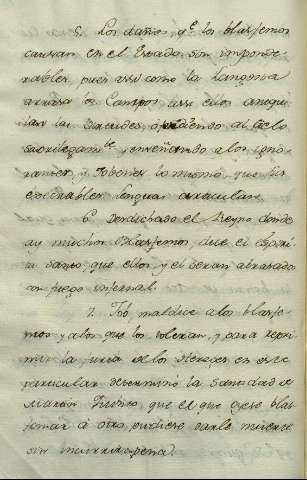 5. Los daños, qᵉ los blasfemos
causan en el Estado, son imponde-
rables, pues assi como la langosta
arrasa los Campos, assi ellos aniqui-
lan las ofendiendo al Cielo
sacrilegamᵗᵉ, y enseñando a los igno-
rantes, y Jobenes lo mismo, que sus
execrables lenguas articulan.
6. Desdichado el Reyno donde
ay muchos Blasfemos, dice el Espiri-
tu santo, que ellos, y el seran abrasados
con fuego infernal.
7. Job maldice a los blasfe-
mos, y a los que los toleran, y para repri-
mir la furia de los Hereges en este
particular determinó la Santidad de
Martin que el que oyese blas-
femar à otro, pudiese darle muerte
sin incurrir en pena.